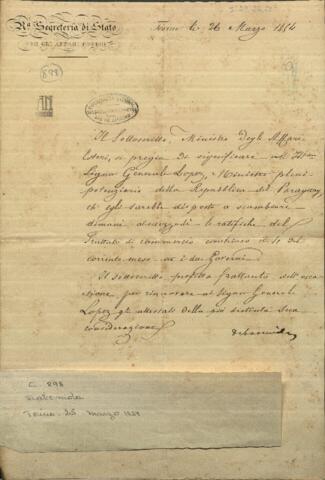 Rª Segreteria di Stato
PER GLI AFFARI ESTERI
Torino li 26 Marzo 1854
(898)
Il Sottoscritto, Ministro degli Affari
Esteri, si pregia di significare al
Signor Generale Lopez, Ministro pleni-
potenziario della Repubblica del Paraguay,
ch'egli sarebbe disposto a scambiare
dimani le ratifiche del
Trattato di commercio conchiuso il 4 del
corrente mese fra i due Governi.
Il sottoscritto profitta frattanto dell'occa-
sione per rinnovare al Signor Generale
Lopez gli attestati della più distinta sua
considerazione
C. 898
Torino - 25 marzo 1854